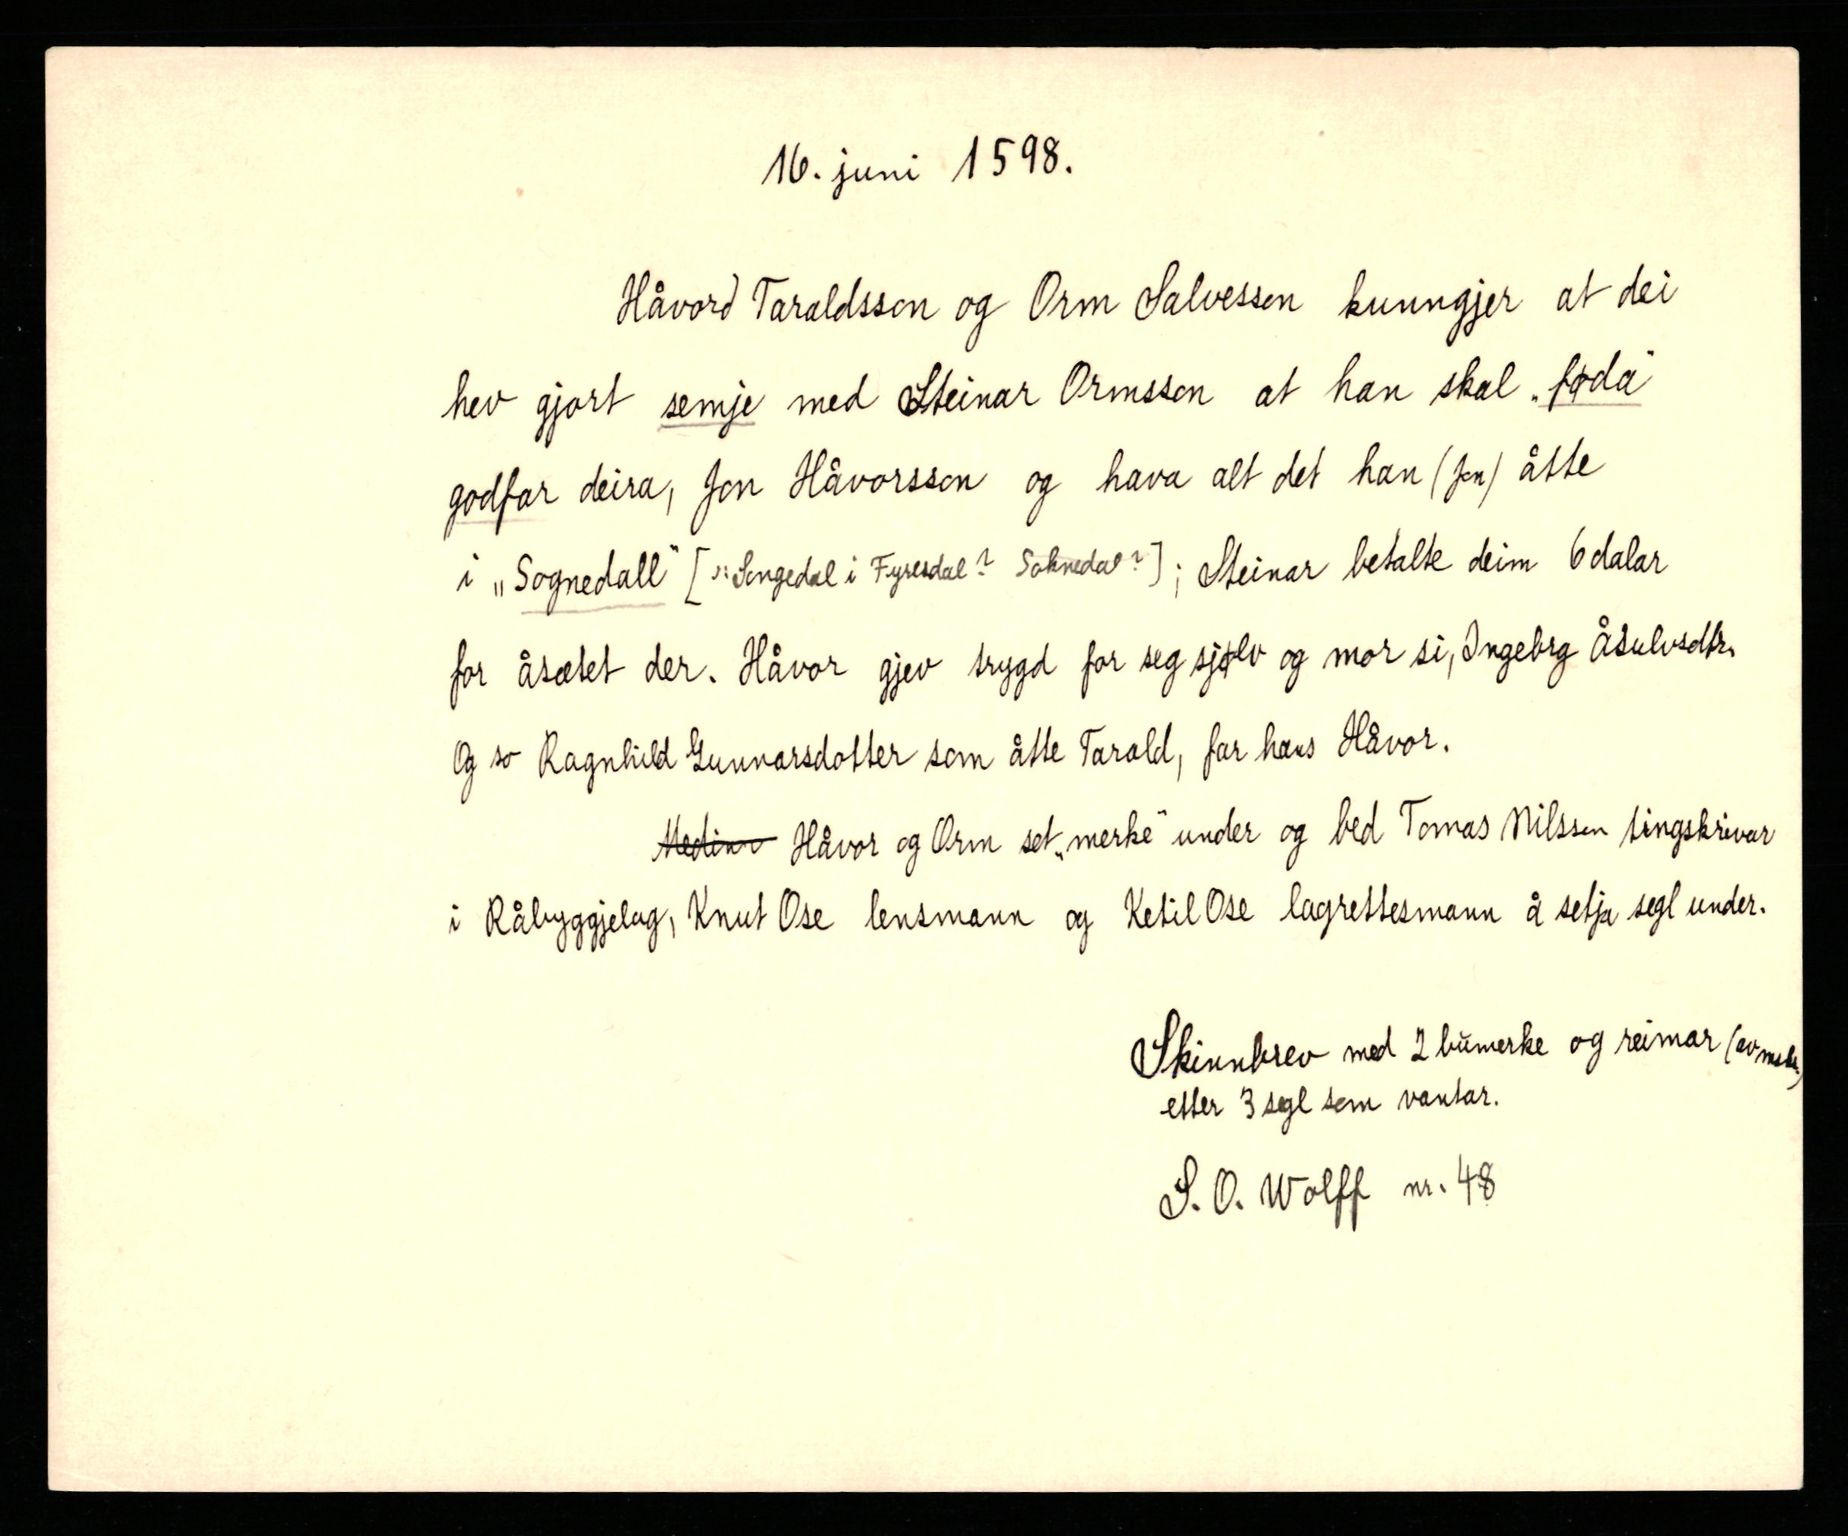 16. juni 1598.
Håvord Taraldsson og Orm Salvesson kunngjer at dei
hev gjort semje med Steinar Ormsson at han skal „føda"
godfar deira, Jon Håvorsson og hava alt det han (Jon) åtte
i „Sognedall" [ɔ: Songedal i Fyresdal? Soknedal?]; Steinar betalte deim 6 dalar
for åsætet der. Håvor gjev trygd for seg sjølv og mor si, Ingebrg Åsulvsdtr.
Og so Ragnhild Gunnarsdotter som åtte Tarald, far hans Håvor.
Håvor og Orm set „merke" under og bed Tomas Nilsson tingskrivar
i Råbyggjelag, Knut Ose lensmann og Ketil Ose lagrettesmann å setja segl under.
Skinnbrev med 2 bumerke og reimar (av
etter 3 segl som vantar.
S. O. Wolff nr. 48